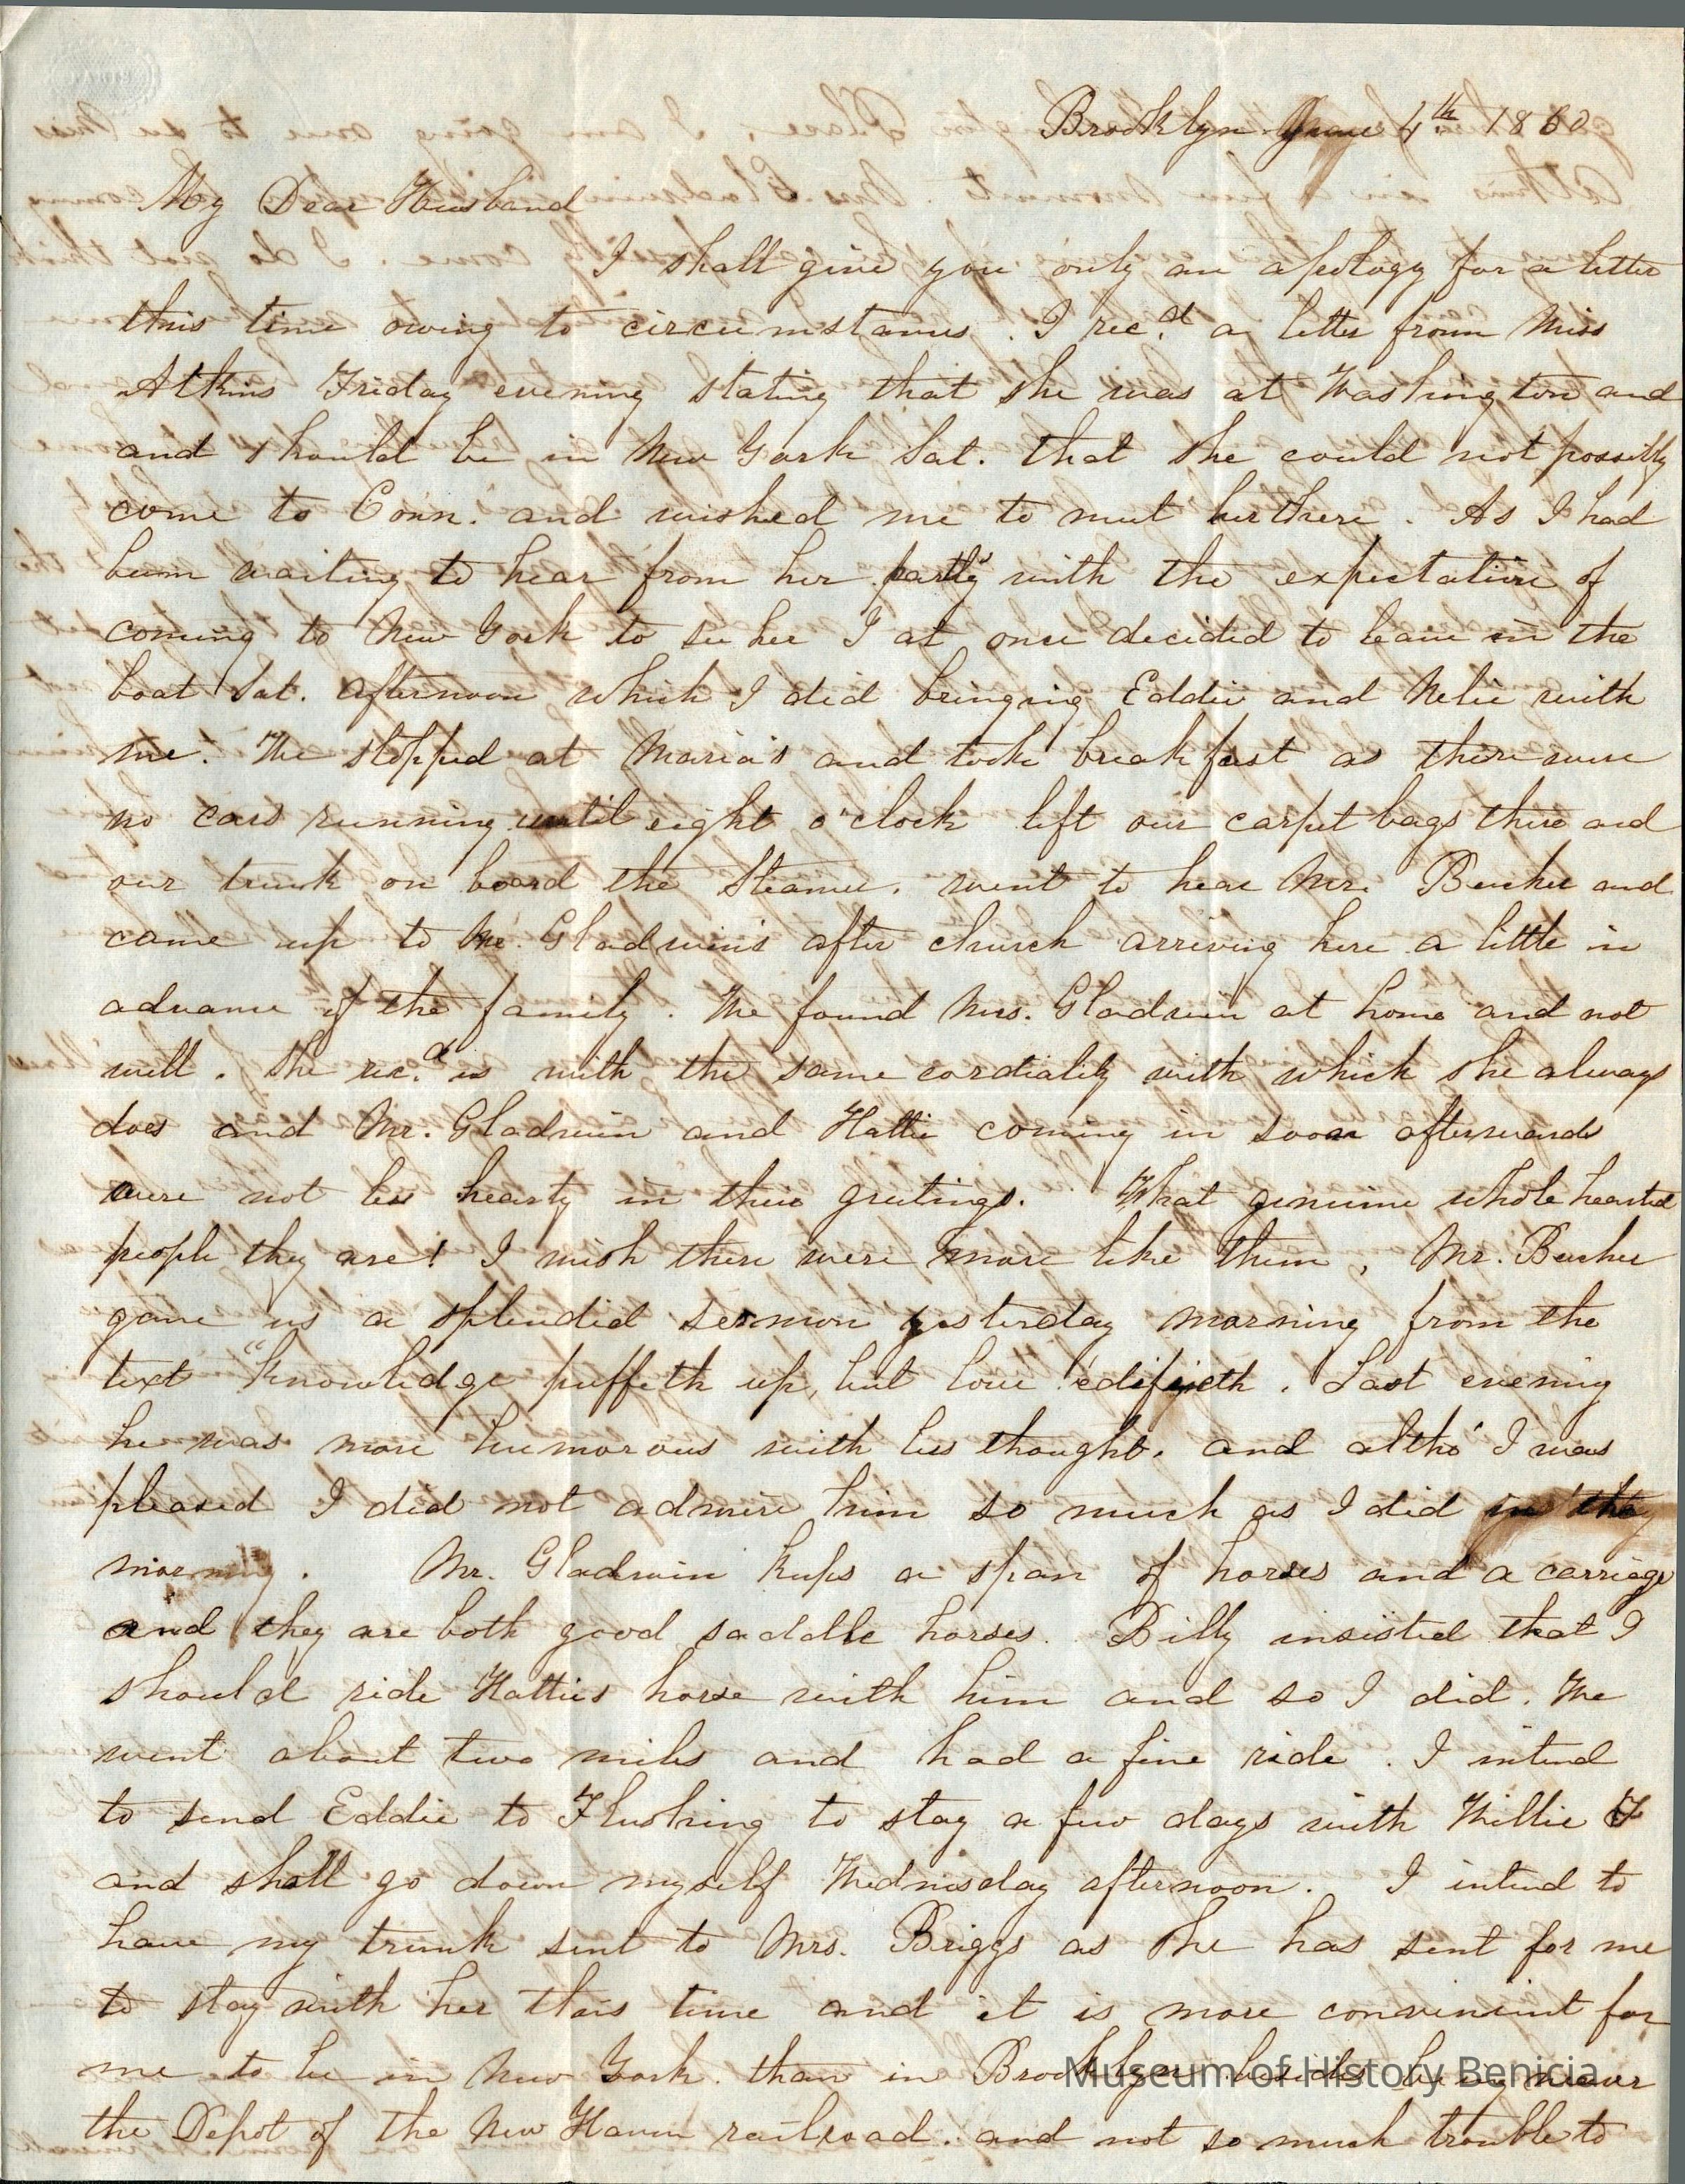 Brooklyn June 4th 1860
My Dear Husband
I shall give you only an apology for a letter
this time owing to circumstances. I rec.d a letter from Miss
Atkins Friday evening stating that she was at Washington and
and should be in New York Sat. that she could not possibly
come to Conn. and wished me to meet her there. As I had
been waiting to hear from her partly with the expectation of
coming to New York to see her I at once decided to leave in the
boat Sat. afternoon which I did bringing Eddie and Nelie with
me. We stopped at Maria's and took breakfast as there were
no cars running until eight o'clock left our carpet bags there and
our trunk on board the Steamer. went to hear Mr. Beecher and
came up to Mr. Gladwin's after church arriving here a little in
advance of the family. We found Mrs. Gladwin at home and not
well. She rec.d us with the same cordiality with which she always
does and Mr. Gladwin and Hattie coming in soon afterwards
were not less hearty in their greetings. What genuine whole hearted
people they are! I wish there were more like them. Mr. Beecher
gave us a splendid sermon yesterday morning from the
text "Knowledge puffeth up, but love edifyeth. Last evening
he was more humorous with less thought. and altho' I was
pleased I did not admire him so much as I did in the
morning. Mr. Gladwin keeps a span of horses and a carriage
and they are both good saddle horses. Billy insisted that I
should ride Hatties horse with him and so I did. We
went about two miles and had a fine ride. I intend
to send Eddie to Flushing to stay a few days with Willie F
and shall go down myself Wednesday afternoon. I intend to
have my trunk sent to Mrs. Briggs as she has sent for me
to stay with her this time and it is more convenient for
me to be in New York. than in Brooklyn besides being nearer
the Depot of the New Haven railroad. and not so much trouble to
Museum of History Benicia